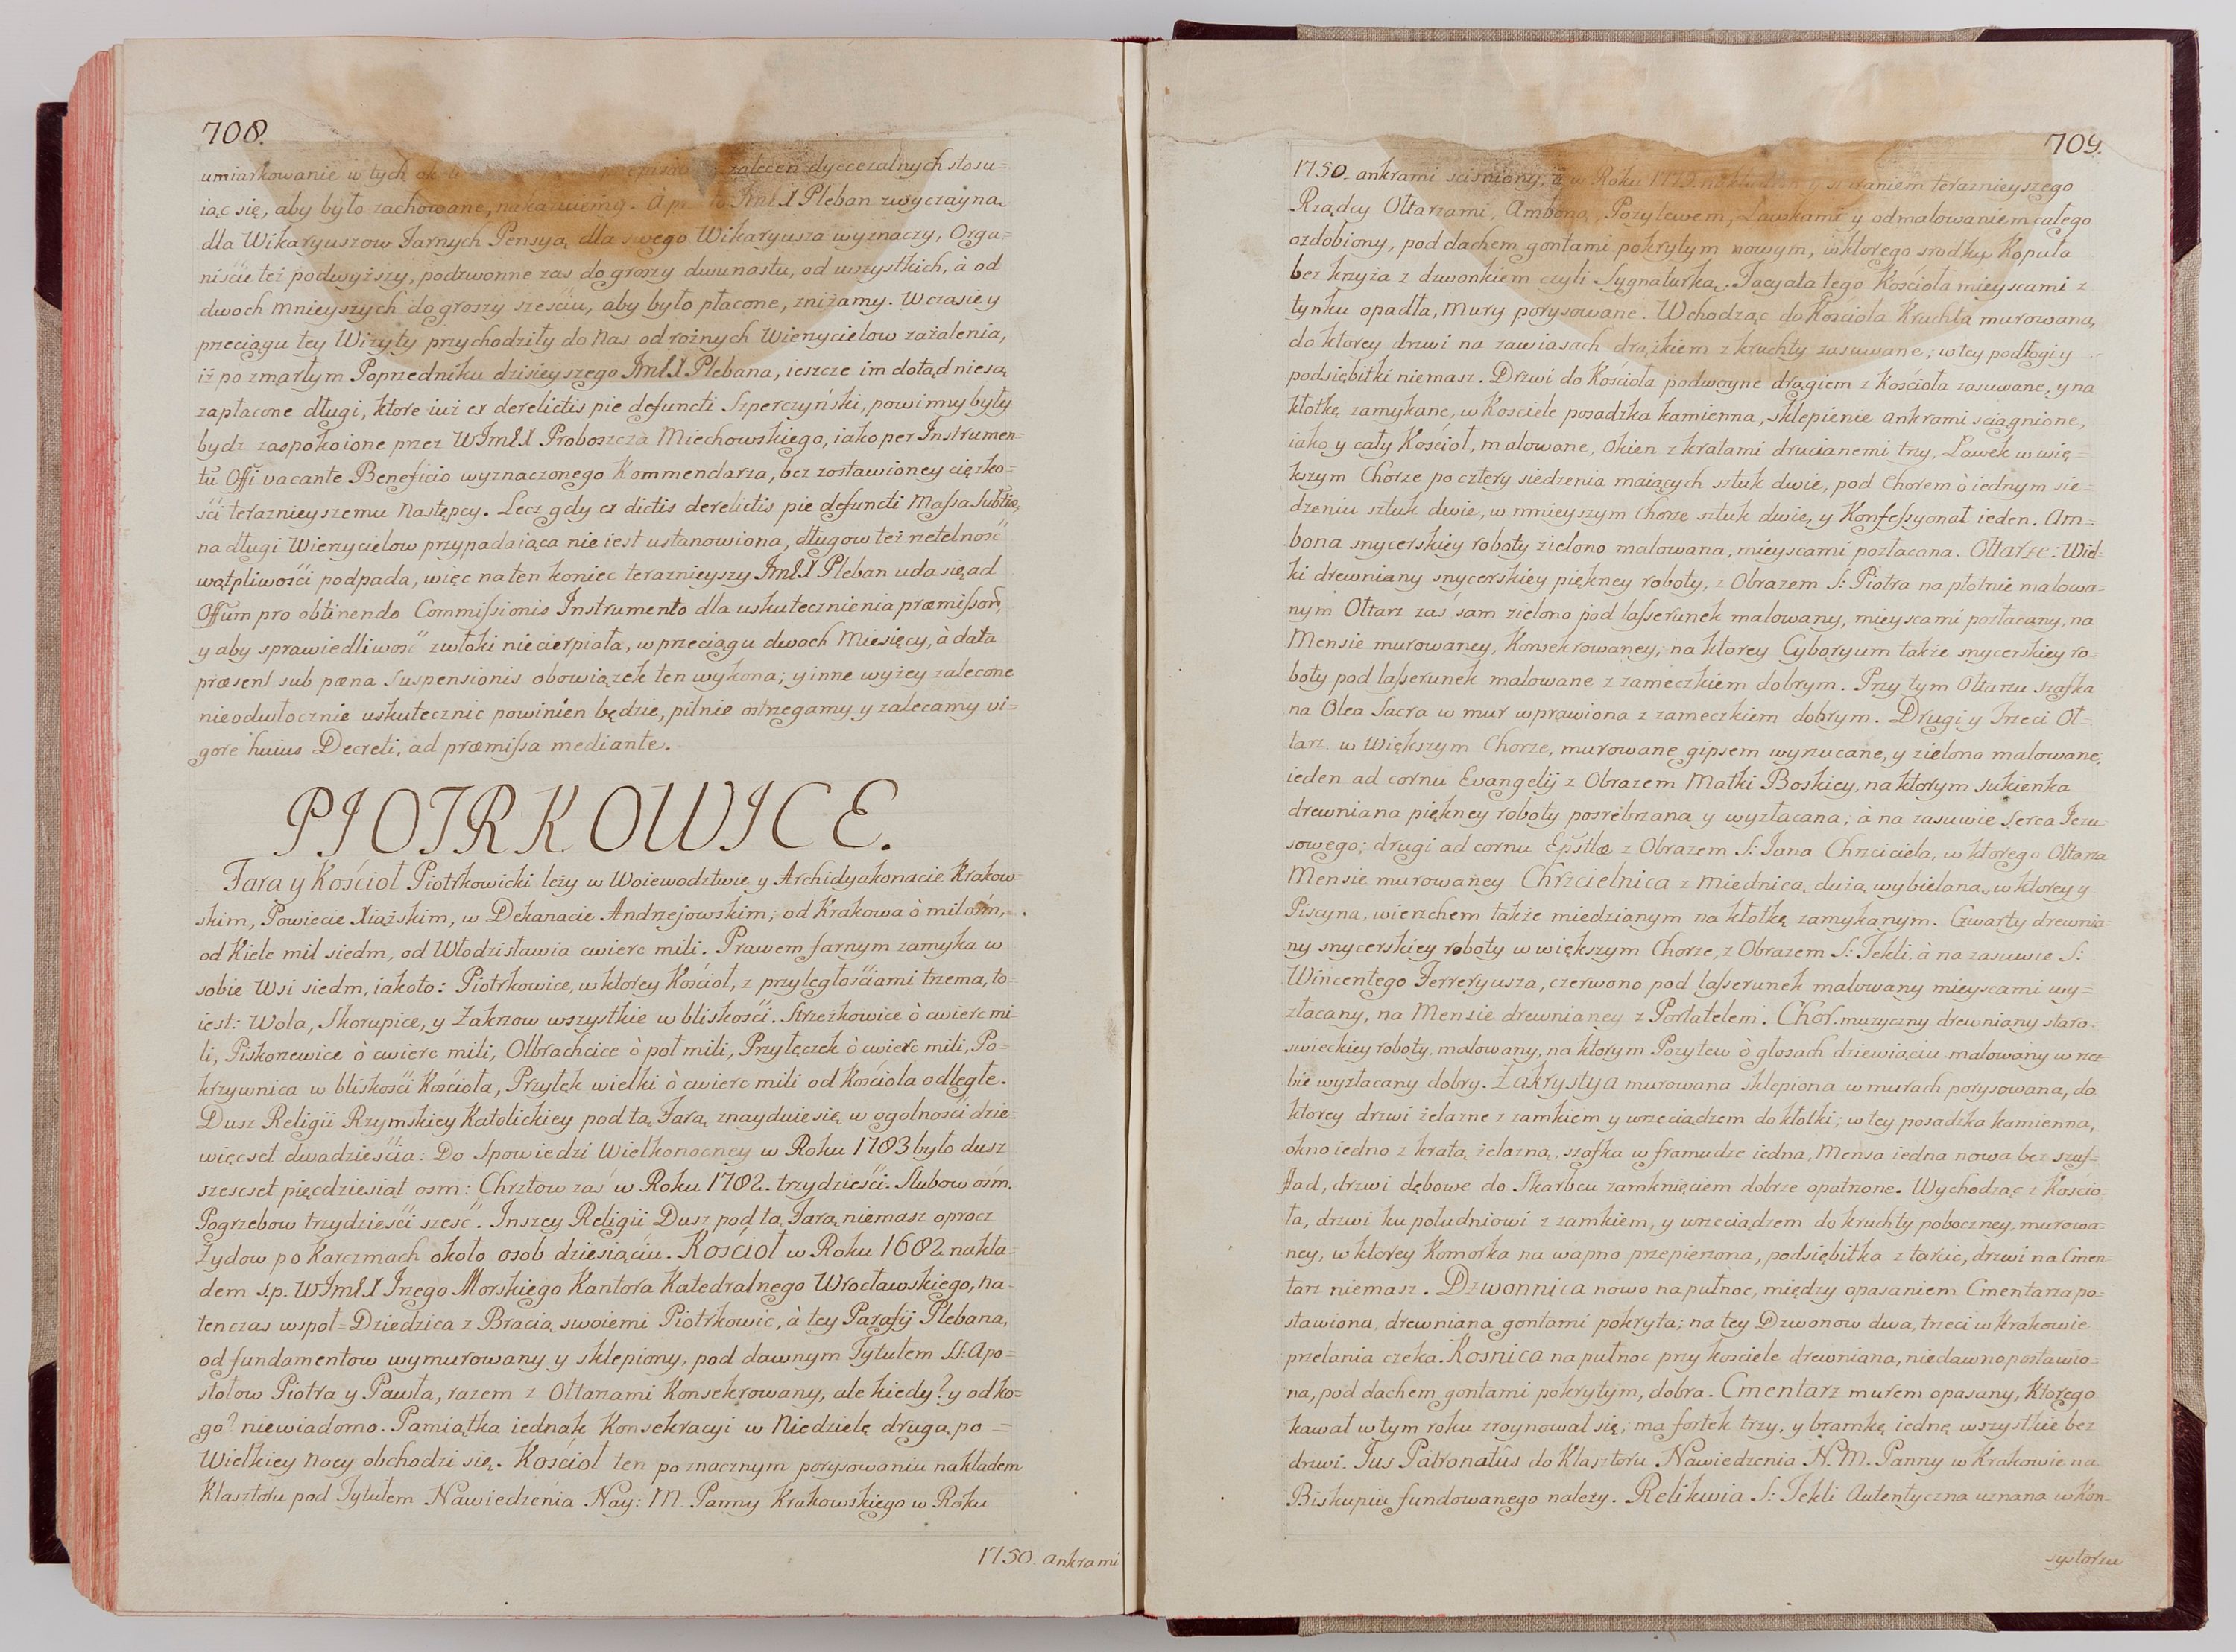 708.
umiarkowanie w tych zaleceń dyecezalnych stosu=
iąc się, aby było zachowane, nakazuiemy. à JmłX Pleban zwyczayną
dla Wikaryuszow Farnych Pensyą dla swego Wikaryusza wyznaczy, Orga=
niście też podwyższy, podzwonne zas do groszy dwunastu, od wszystkich, à od
dwoch mnieyszych do groszy sześciu, aby było płacone, zniżamy. W czasie y
przeciągu tey Wizyty przychodziły do Nas od rożnych Wierzycielow zażalenia,
iż po zmarłym Poprzedniku dzisieyszego JmłX Plebana, ieszcze im dotąd niesą
zapłacone długi, ktore iuż ex derelictis pie defuncti Szperczyński, powinny były
bydz zaspokoione przez WJmłX Proboszcza Miechowskiego, iako per Instrumen=
tũ Offi vacante Beneficio wyznaczonego Kommendarza, bez zostawioney ciężko=
ści teraznieyszemu Następcy. Lecz gdy ex dictis derelictis pie defuncti Massa
na długi Wierzycielow przypadaiąca nie iest ustanowiona, długow też rzetelność
wątpliwości podpada, więc na ten koniec teraznieyszy JmłX Pleban uda się ad
Offum pro obtinendo Commissionis Instrumento dla uskutecznienia præmissor̃,
y aby sprawiedliwość zwłoki niecierpiała, w przeciągu dwoch Miesięcy, à data
præsent sub pæna Suspensionis obowiązek ten wykona; y inne wyżey zalecone
nieodwłocznie uskutecznic powinien będzie, pilnie ostrzegamy y zalecamy vi=
gore huius Decreti, ad præmissa mediante.
PIOTRKOWICE.
Fara y Kościoł Piotrkowicki leży w Woiewodztwie y Archidyakonacie Krakow=
skim, Powiecie Xiążskim, w Dekanacie Andrzejowskim; od Krakowa ò mil osm,
od Kielc mil siedm, od Włodzisławia cwierc mili. Prawem farnym zamyka w
sobie Wsi siedm, iakoto: Piotrkowice, w ktorey Kościoł, z przyległościami trzema, to=
iest: Wola, Skorupice, y Zakrzow wszystkie w bliskości. Strzeżkowice ò cwierc mi=
li, Piskorzewice ò cwierc mili, Olbrachcice ò poł mili, Przyłęczek ò cwierc mili, Po=
krzywnica w bliskości Kościoła, Przyłęk wielki ò cwierc mili od Kościoła odległe.
Dusz Religii Rzymskiey Katolickiey pod tą Farą znayduie się w ogolności dzie=
więcset dwadzieścia: Do Spowiedzi Wielkonocney w Roku 1783 było dusz
szescset pięcdziesiąt osm: Chrztow zaś w Roku 1782. trzydzieści. Slubow ośm.
Pogrzebow trzydzieści szesć. Inszey Religii Dusz pod tą Farą niemasz oprocz
Żydow po Karczmach około osob dziesiąciu. Kościoł w Roku 1682 nakła=
dem s.p. WJmłX Jrzego Morskiego Kantora Katedralnego Wrocławskiego, na=
tenczas wspoł=Dziedzica z Bracią swoiemi Piotrkowic, à tey Parafij Plebana,
od fundamentow wymurowany y sklepiony, pod dawnym Tytułem SS: Apo=
stołow Piotra y Pawła, razem z Ołtarzami Konsekrowany, ale kiedy? y od ko=
go? niewiadomo. Pamiątka iednak Konsekracyi w Niedzielę drugą po =
Wielkiey Nocy obchodzi się. Kościoł ten po znacznym porysowaniu nakładem
Klasztoru pod Tytułem Nawiedzenia Nay: M. Panny Krakowskiego w Roku
1750. ankrami
709.
1750. ankrami scisniony, à w Roku staraniem teraznieyszego
Rządcy Ołtarzami, Amboną, Pozytewem, Ławkami y odmalowaniem całego
ozdobiony, pod dachem gontami pokrytym nowym, w ktorego srodku Kopuła
bez krzyża z dzwonkiem czyli Sygnaturką. Facyata tego Kościoła mieyscami z
tynku opadła, mury porysowane. Wchodząc do Kościoła Kruchta murowana,
do ktorey drzwi na zawiasach drążkiem z kruchty zasuwane; w tey podłogi y
podsiębitki niemasz. Drzwi do Kościoła podwoyne drągiem z Kościoła zasuwane, y na
kłotkę zamykane, w Kosciele posadzka kamienna, sklepienie ankrami sciągnione,
iako y cały Kościoł, malowane, Okien z kratami drucianemi trzy, Ławek w wię=
kszym Chorze po cztery siedzenia maiących sztuk dwie, pod Chorem ò iednym sie=
dzeniu sztuk dwie, w mnieyszym Chorze sztuk dwie, y Konfessyonał ieden. Am=
bona snycerskiey roboty zielono malowana, mieyscami pozłacana. Ołtarze: Wiel=
ki drewniany snycerskiey piękney roboty, z Obrazem S: Piotra na płotnie malowa=
nym Ołtarz zaś sam zielono pod lasserunek malowany, mieyscami pozłacany, na
Mensie murowaney, Konsekrowaney, na ktorey Cyboryum także snycerskiey ro=
boty pod lasserunek malowane z zameczkiem dobrym. Przy tym Ołtarzu szafka
na Olea Sacra w mur wprawiona z zameczkiem dobrym. Drugi y Trzeci Oł=
tarz w Większym Chorze, murowane gipsem wyrzucane, y zielono malowane,
ieden ad cornu Evangelij z Obrazem Matki Boskiey, na ktorym sukienka
drewniana piękney roboty posrebrzana y wyzłacana; à na zasuwie Serca Jezu
sowego; drugi ad cornu Epŝtlæ z Obrazem S: Jana Chrzciciela, w ktorego Ołtarza
Mensie murowaney Chrzcielnica z miednicą dużą wybielaną, w ktorey y
Piscyna, wierzchem także miedzianym na kłotkę zamykanym. Czwarty drewnia=
ny snycerskiey roboty w większym Chorze, z Obrazem S: Tekli, à na zasuwie S:
Wincentego Ferreryusza, czerwono pod lasserunek malowany mieyscami wy=
złacany, na Mensie drewnianey z Portatelem. Chor muzyczny drewniany staro=
swieckiey roboty, malowany, na ktorym Pozytew ò głosach dziewiąciu malowany w rzeź
bie wyzłacany dobry. Zakrystya murowana sklepiona w murach porysowana, do
ktorey drzwi żelazne z zamkiem y wrzeciądzem do kłotki; w tey posadzka kamienna,
okno iedno z kratą żelazną, szafka w framudze iedna, Mensa iedna nowa bez szuf=
flad, drzwi dębowe do Skarbcu zamknięciem dobrze opatrzone. Wychodząc z Koscio=
ła, drzwi ku południowi z zamkiem, y wrzeciądzem do kruchty poboczney, murowa=
ney, w ktorey Komorka na wapno przepierzona, podsiębitka z tarcic, drzwi na Cmen=
tarz niemasz. Dzwonnica nowo na pułnoc, między opasaniem Cmentarza po=
stawiona, drewniana gontami pokryta; na tey Dzwonow dwa, trzeci w Krakowie
przelania czeka. Kosnica na pułnoc przy kosciele drewniana, niedawno postawio=
na, pod dachem gontami pokrytym, dobra. Cmentarz murem opasany, Ktorego
kawał w tym roku zroynował się; ma fortek trzy, y bramkę iednę wszystkie bez
drzwi. Jus Patronatûs do Klasztoru Nawiedzenia N. M. Panny w Krakowie na
Biskupiu fundowanego należy. Relikwia S: Tekli Autentyczna uznana w Kon=
systorzu